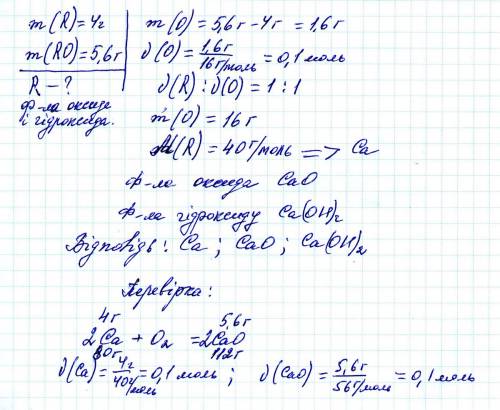 m(R)=4г
m(RO)=5,6г
R-?
ф-ла оксида
і гідроксида.
m(O)=5,6г-4г=1,6г
ν(O)=1,6г/16г/моль=0,1моль
ν(R):ν(O)=1:1
m(O)=16г
M(R)=40г/моль => Ca
Ф-ла оксида CaO
Ф-ла гідроксиду Ca(OH)₂
Відповідь: Ca; CaO; Ca(OH)₂
Перевірка:
4г 5,6г
2Ca+O₂=2CaO
80г 112г
ν(Ca)=4г/40г/моль=0,1моль; ν(CaO)=5,6г/56г/моль=0,1моль